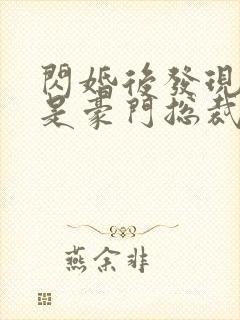 閃婚後發現
是豪門總裁
燕余非